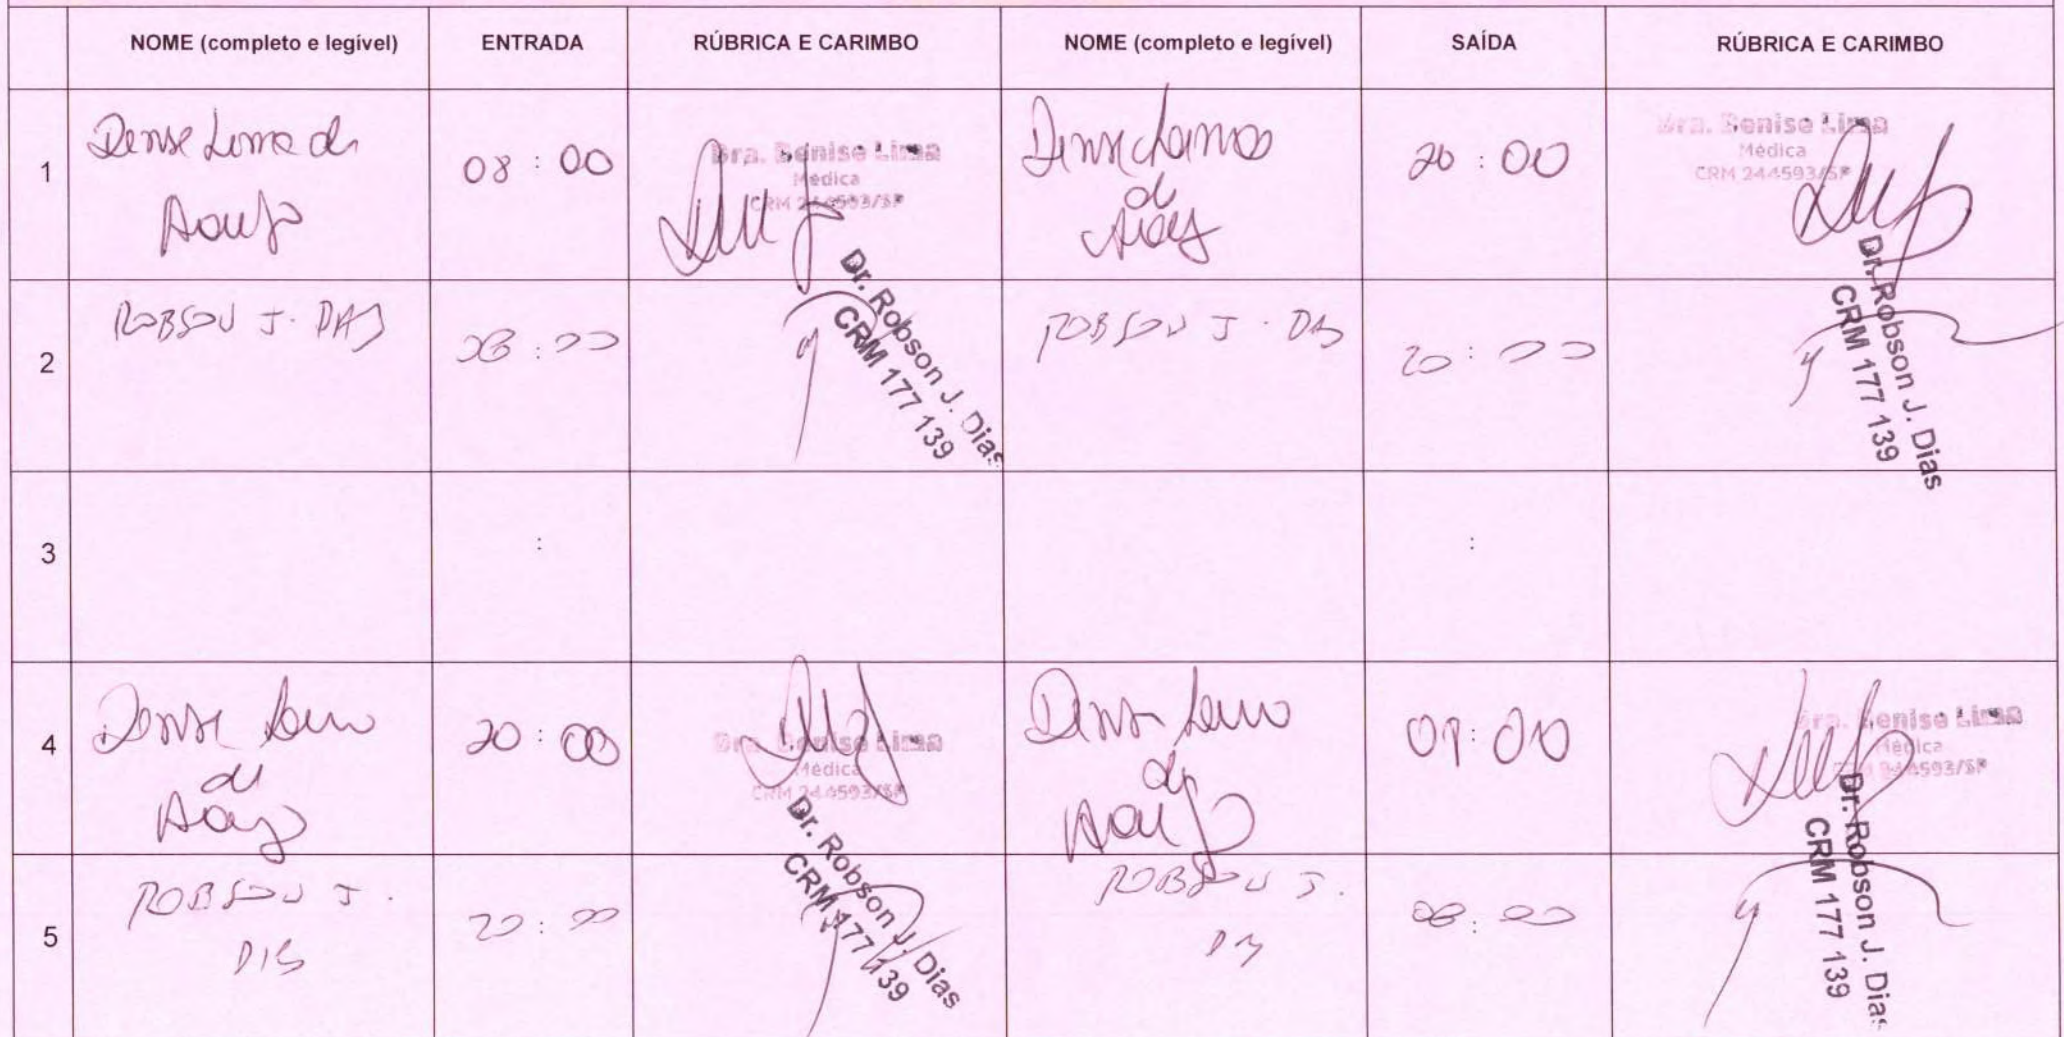 NOME (completo e legível) ENTRADA RÚBRICA E CARIMBO NOME (completo e legível) SAÍDA RÚBRICA E CARIMBO
1
Denise Lima de
Araujo
08 : 00
Dra. Denise Lima
Médica
CRM 244593/SP
Denise Lima
de
20 : 00
Dra. Denise Lima
Médica
CRM 244593/SP
2
ROBSON J. DIAS
08 : 00
Dr. Robson J. Dias
CRM 177 139
ROBSON J. DIAS
20 : 00
Dr. Robson J. Dias
CRM 177 139
3
:
:
4
Denise Lima
de
Araujo
20 : 00
Dra. Denise Lima
Médica
CRM 244593/SP
Denise Lima
de
Araujo
: 00
Dra. Denise Lima
Médica
CRM 244593/SP
5
ROBSON J.
DIAS
20 : 00
Dr. Robson J. Dias
CRM 177 139
ROBSON J.
08 : 00
Dr. Robson J. Dias
CRM 177 139